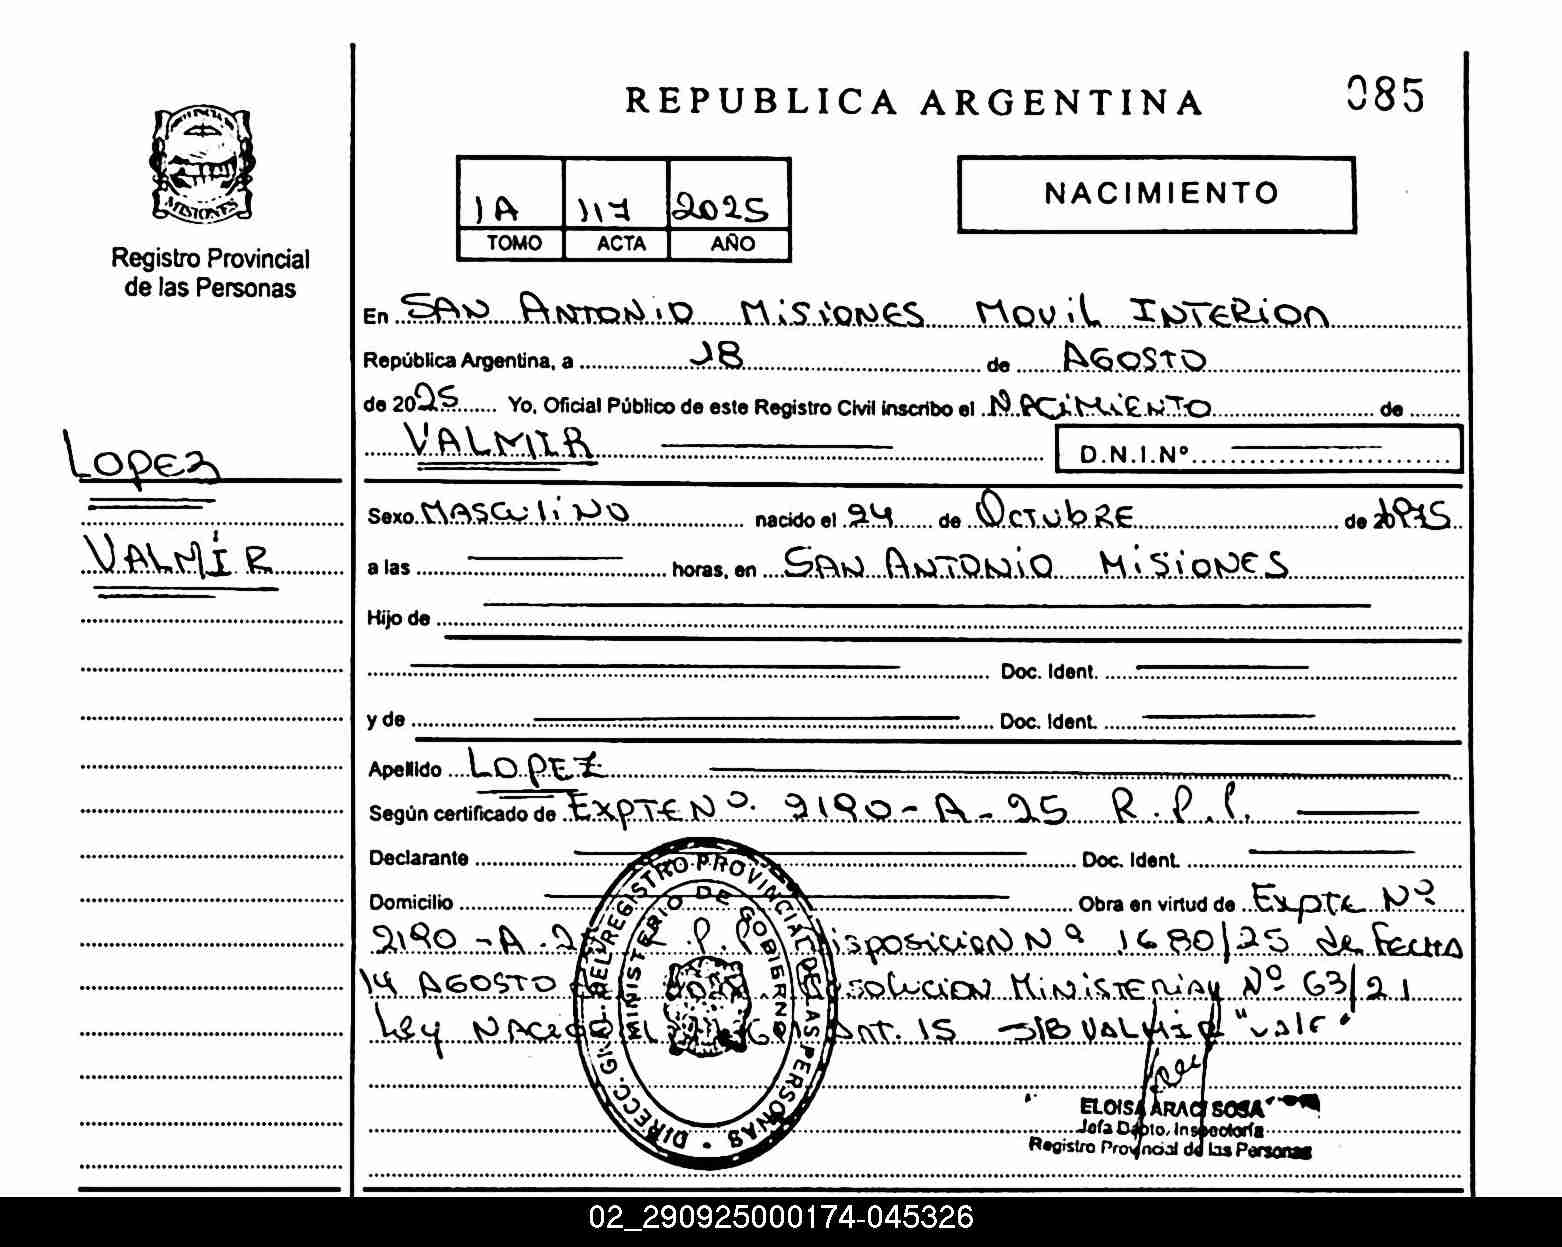 REPUBLICA ARGENTINA
085
MISIONES
Registro Provincial
de las Personas
1A 117 2025
TOMO ACTA AÑO
NACIMIENTO
En SAN ANTONIO MISIONES MOVIL INTERIOR
República Argentina, a 18 de AGOSTO
de 2025 Yo, Oficial Público de este Registro Civil inscribo el NACIMIENTO de
VALMIR
D.N.I.Nº
LOPEZ
VALMIR
Sexo MASCULINO nacido el 24 de OCTUBRE de 1975
a las horas, en SAN ANTONIO MISIONES
Hijo de
Doc. Ident.
y de Doc. Ident.
Apellido LOPEZ
Según certificado de EXPTE Nº 2190-A-25 R.P.P.
Declarante Doc. Ident.
Domicilio Obra en virtud de Expte Nº
2190-A-2 P.P. Disposicion Nº 1680/25 de FECHA
14 AGOSTO Resolucion Ministerial Nº 63/21
Ley NACIONAL ART. 15 S/B VALMIR "vale"
DIRECC. GRAL. DEL REGISTRO PROVINCIAL DE LAS PERSONAS
MINISTERIO DE GOBIERNO
ELOISA ARACI SOSA
Jefa Dapto. Inspectoría
Registro Provincial de las Personas
02_290925000174-045326